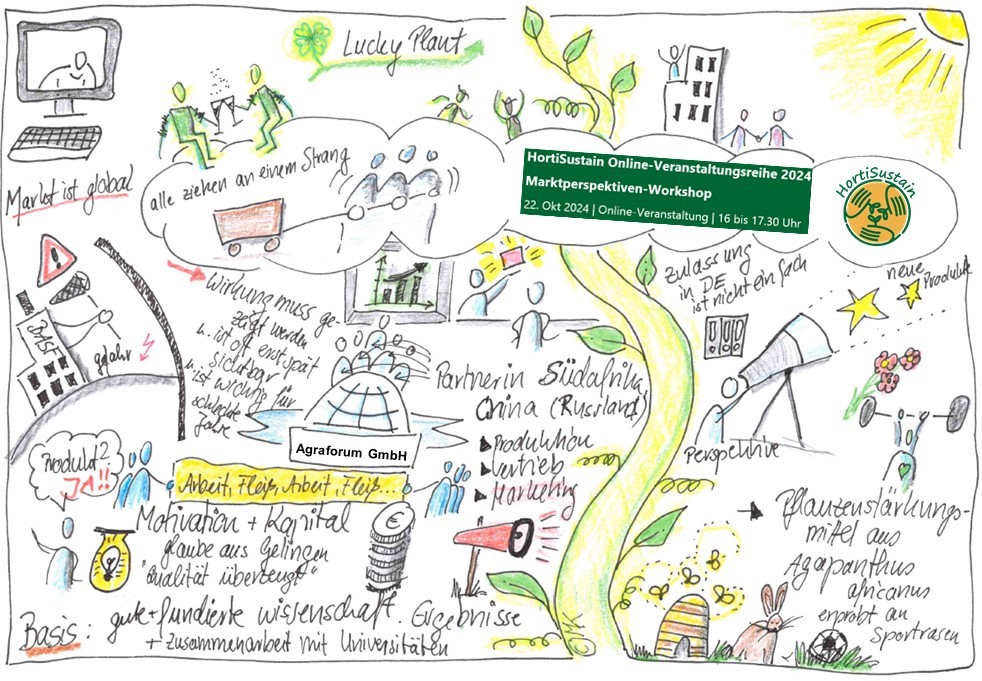 Lucky Plant
Markt ist global
alle ziehen an einem Strang
HortiSustain Online-Veranstaltungsreihe 2024
Marktperspektiven-Workshop
22. Okt 2024 | Online-Veranstaltung | 16 bis 17.30 Uhr
HortiSustain
Wirkung muss ge-
zeigt werden
u. ist oft erst spät
sichtbar
u. ist wichtig für
schlechte
Jahre
Zulassung
in DE
ist nicht einfach
neue
Produkte
gefahr
Partner in Südafrika,
China (Russland)
Produktion
Vertrieb
Marketing
Perspektive
Agraforum GmbH
Produkt?
JA!!
Arbeit, Fleiß, Arbeit, Fleiß...
Motivation + Kapital
glaube ans Gelingen
"Qualität überzeugt"
€
Basis: gute + fundierte wissenschaft. Ergebnisse
+ Zusammenarbeit mit Universitäten
Pflanzenstärkungs-
mittel aus
Agapanthus
africanus
erprobt an
Sportrasen